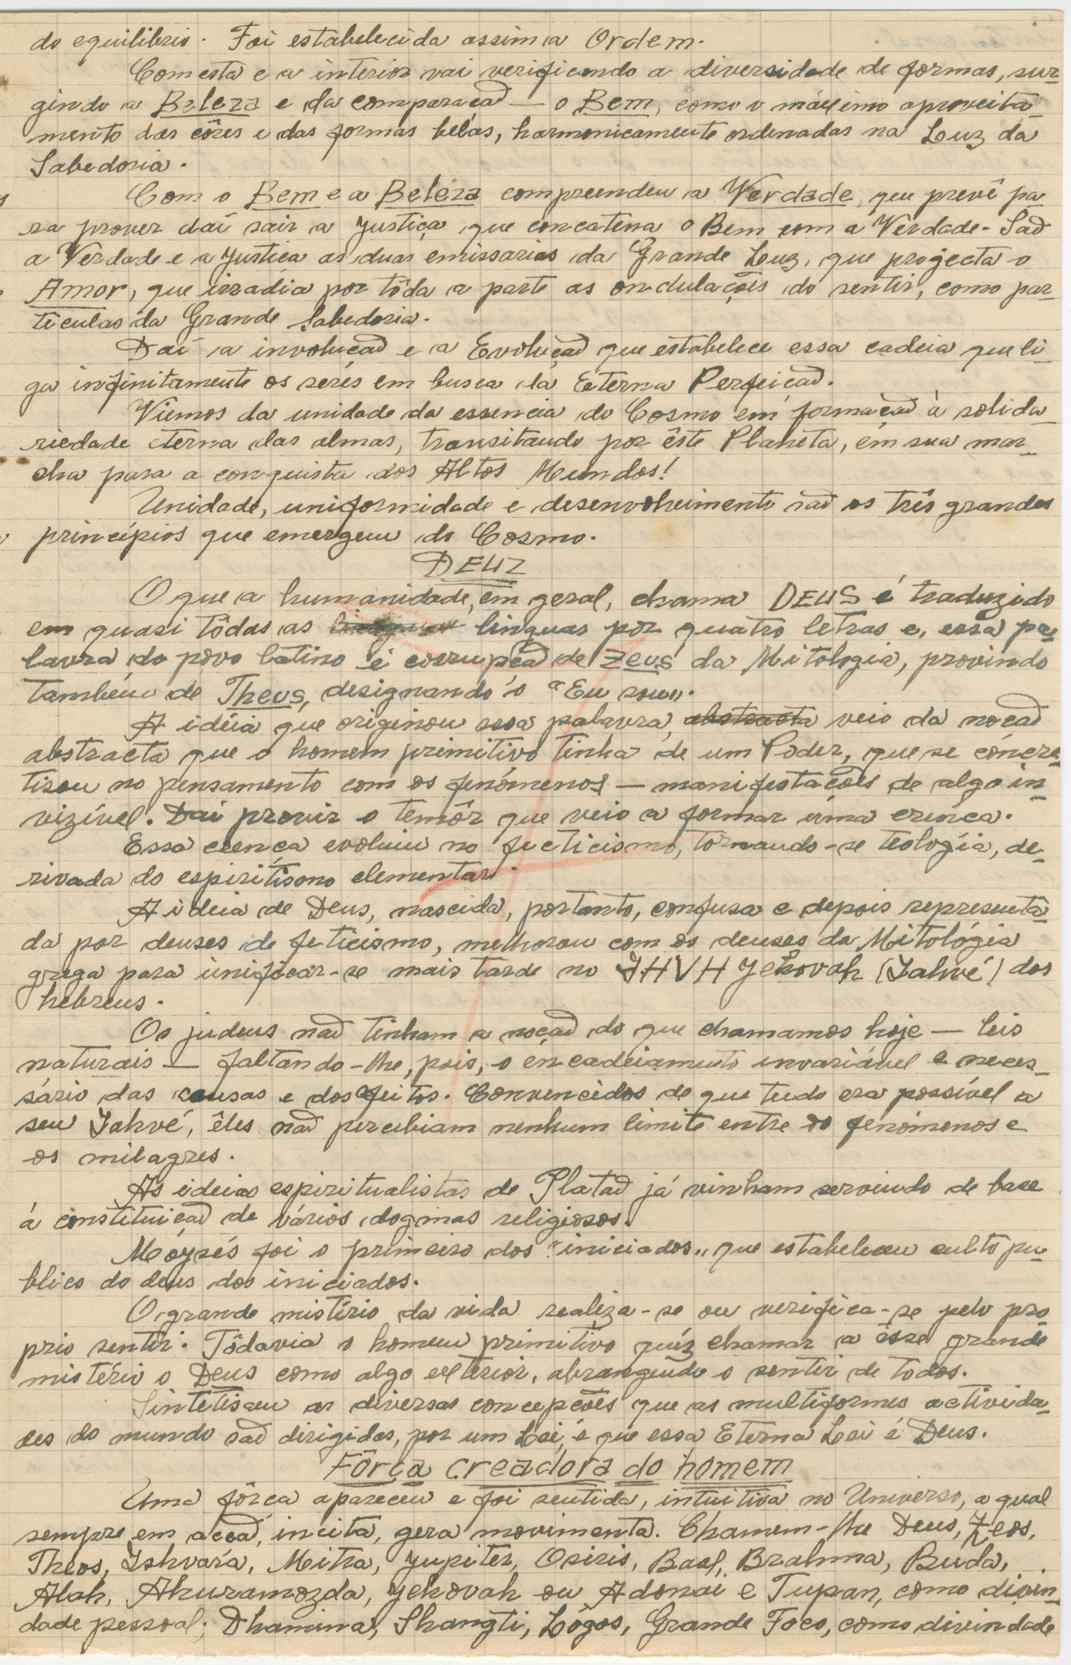 do equilibrio. Foi estabelecida assim a Ordem.
Com esta e a interior vai verificando a diversidade de formas, sur-
gindo a Beleza e da comparacaõ — o Bem, como o máximo aproveita
mento das côres e das formas belas, harmonicamente ordenadas na Luz da
Sabedoria.
Com o Bem e a Beleza compreendeu a Verdade, que prevê pa
ra prover daí sair a Justiça que concatena o Bem com a Verdade. Saõ
a Verdade e a Justiça as duas emissarias da Grande Luz, que projecta o
Amor, que irradia por tôda a parte as ondulações do sentir, como par-
tículas da Grande Sabedoria.
Daí a involucaõ e a Evolucaõ que estabelece essa cadeia que li-
ga infinitamente os serés em busca da Eterna Perfeicaõ.
Viemos da unidade da essencia do Cosmo em formacaõ à solida-
riedade eterna das almas, transitando por êste Planeta, em sua mar-
cha para a conquista dos Altos Mundos!
Unidade, uniformidade e desenvolvimento saõ os três grandes
princípios que emergem do Cosmo.
DEUZ
O que a humanidade, em geral, chama DEUS é traduzido
em quasi tôdas as linguas por quatro letras e, essa pa-
lavra do pôvo latino é corrupcaõ de Zeus da Mitologia, provindo
também de Theos, designando o "Eu sou".
A idéia que originou essa palavra, abstracta veio da nocaõ
abstracta que o homem primitivo tinha de um Poder, que se concre-
tisou no pensamento com os fenómenos — manifestacões de algo in-
vizível. Daí provir o temôr que veio a formar uma crença.
Essa crença evoluiu no feticismo, tornando-se teologia, de-
rivada do espiritismo elementar.
A ideia de Deus, nascida, portanto, confusa e depois representa-
da por deuses de feticismo, melhorou com os deuses da Mitológia
grega para unificar-se mais tarde no JHVH Jehovah (Jahvé) dos
hebreus.
Os judeus naõ tinham a noçaõ do que chamamos hoje — leis
naturais — faltando-lhe, pois, o encadeiamento invariável e neces-
sário das causas e dos efeitos. Convencidos de que tudo era possível a
seu Jahvé, êles naõ percebiam nenhum limite entre os fenómenos e
os milagres.
As ideias espiritualistas de Plataõ já vinham servindo de base
à constituicaõ de vários dogmas religiosos.
Móysés foi o primeiro dos "iniciados" que estabeleceu culto pu-
blico do deus dos iniciados.
O grande mistério da vida realiza-se ou verifica-se pelo pro
prio sentir. Tôdavia o homem primitivo quíz chamar a êsse grande
mistério o Deus como algo exterior, abrangendo o sentir de todos.
Sintetisou as diversas concepcões que as multiformes activida-
des do mundo saõ dirigidas, por um Lei, é que essa Eterna Lei é Deus.
Fôrça creadora do homem
Uma fôrca apareceu e foi sentida, intuitiva no Universo, a qual
sempre em accaõ, incita, gera movimenta. Chamem-lhe Deus, Zeos,
Theos, Ishvara, Mitra, Jupiter, Osiris, Baal, Brahma, Buda,
Alah, Ahuramozda, Jehovah ou Adonai e Tupan, como divin-
dade pessoal; Dhamma, Shangti, Lógos, Grande Foco, como divindade